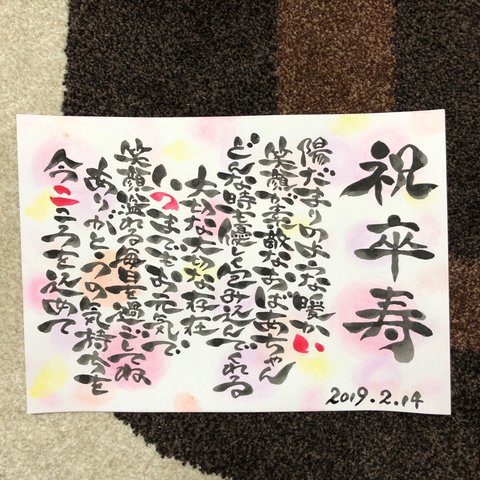 祝卒寿
陽だまりのような暖かい
笑顔が素敵なおばあちゃん
どんな時も優しく包みこんでくれる
大切な大切な存在
いつまでもお元気で
笑顔溢れる毎日を過ごしてね
ありがとうの気持ちを
今こころを込めて
2019.2.14